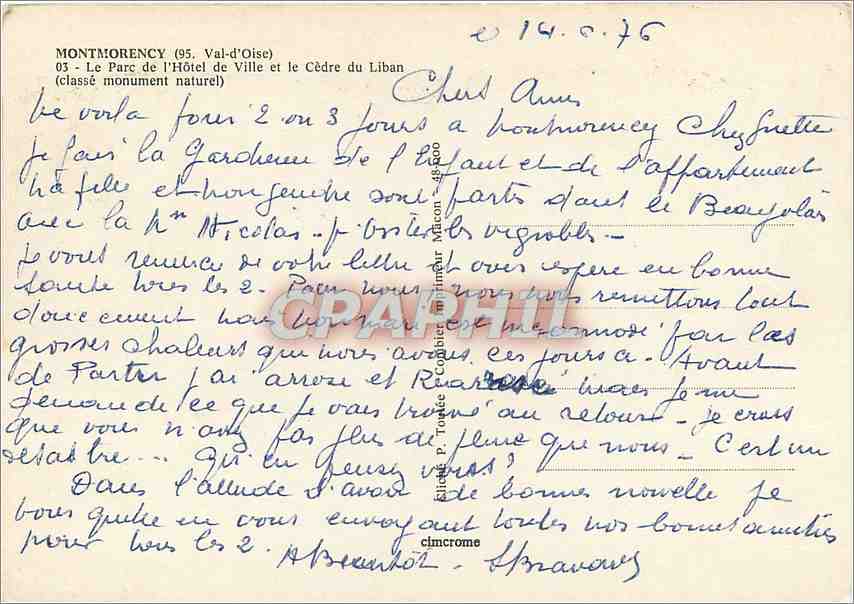 le 14.6.76
MONTMORENCY (95. Val-d'Oise)
03 - Le Parc de l'Hôtel de Ville et le Cèdre du Liban
(classé monument naturel)
Chers Amis
me voila pour 2 ou 3 jours a Montmorency Chez
je fais la Gardienne de l'Enfant et de l'appartement
ma fille et mon gendre sont partis dans le Beaujolais
avec la Nicolas - visiter les vignobles -
je vous remercie de votre lettre et vous espere en bonne
sante tous les 2. Pour nous, nous nous remettons tout
doucement mais mon mari est incommodé par les
grosses chaleurs que nous avons ces jours ci - Avant
de Partir j'ai arrose et mais je me
demande ce que je vais trouvé au retour - je crois
que vous n'avez pas plus de pluie que nous - C'est un
desastre ... qu'en pensez vous?
Dans l'attende d'avoir de bonnes nouvelle je
vous quitte en vous envoyant toutes nos bonnes amitiés
pour tous les 2. A Bientôt -
Cliché P. Toulée - Combier Imprimeur Macon - 48.000
cimcrome
CPARHII